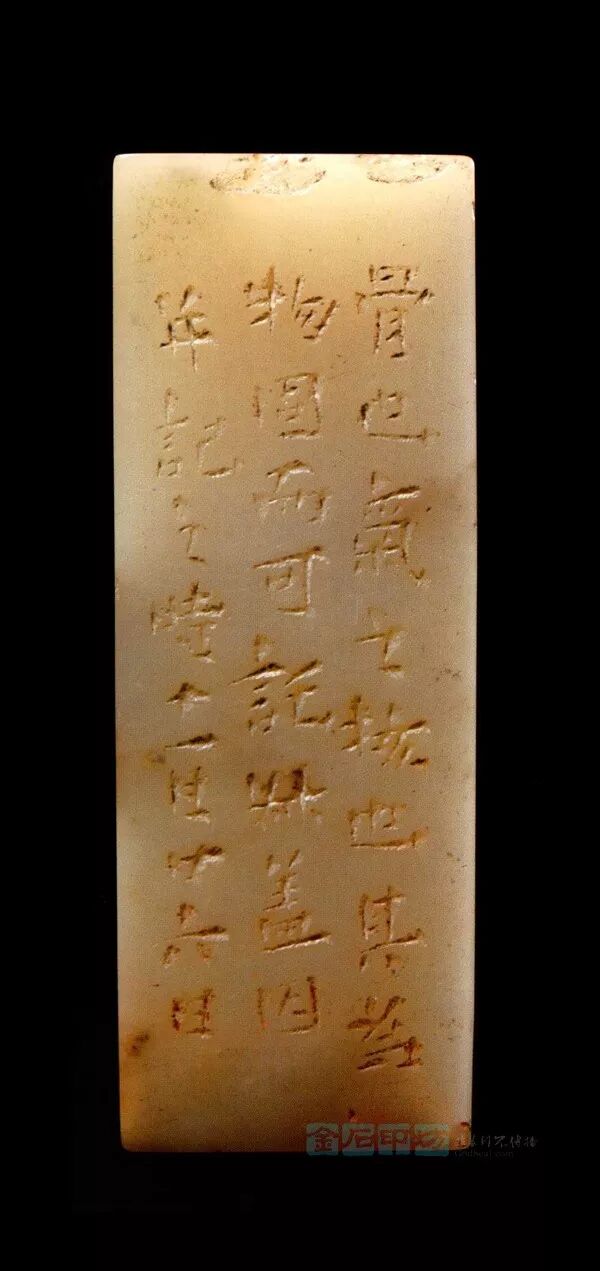 骨也氣之核也其為
物固而可託蓋因
并記之時十一月廿六日
金石印坊